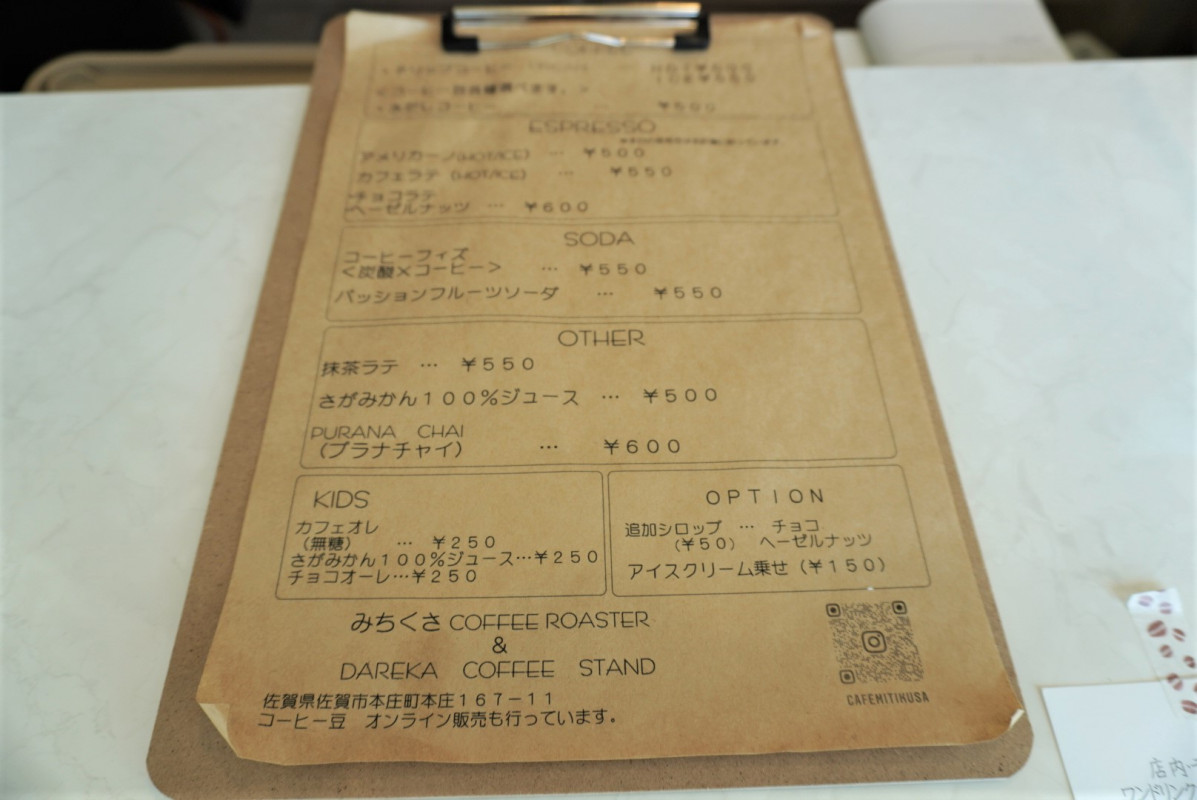 ・みだしコーヒー … ¥500
ESPRESSO
アメリカーノ(HOT/ICE) … ¥500
カフェラテ (HOT/ICE) … ¥550
チョコラテ
ヘーゼルナッツ … ¥600
SODA
コーヒーフィズ
<炭酸×コーヒー> … ¥550
パッションフルーツソーダ … ¥550
OTHER
抹茶ラテ … ¥550
さがみかん100%ジュース … ¥500
PURANA CHAI
(プラナチャイ) … ¥600
KIDS
カフェオレ
(無糖) … ¥250
さがみかん100%ジュース…¥250
チョコオーレ…¥250
OPTION
追加シロップ … チョコ
(¥50) ヘーゼルナッツ
アイスクリーム乗せ(¥150)
みちくさ COFFEE ROASTER
&
DAREKA COFFEE STAND
佐賀県佐賀市本庄町本庄167-11
コーヒー豆 オンライン販売も行っています。
CAFEMITIKUSA
店内
ワンドリンク